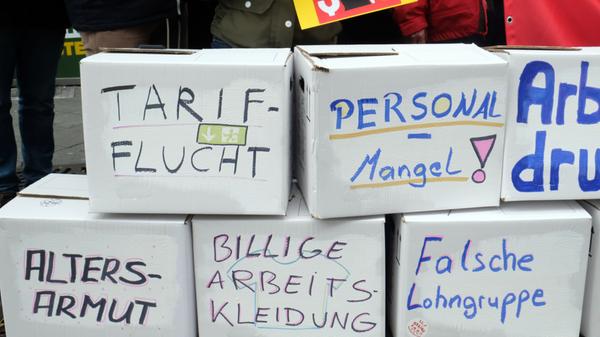 TARIF-
FLUCHT
PERSONAL-
Mangel!
Arb
dru
ALTERS-
ARMUT
BILLIGE
ARBEITS-
KLEIDUNG
Falsche
Lohngruppe